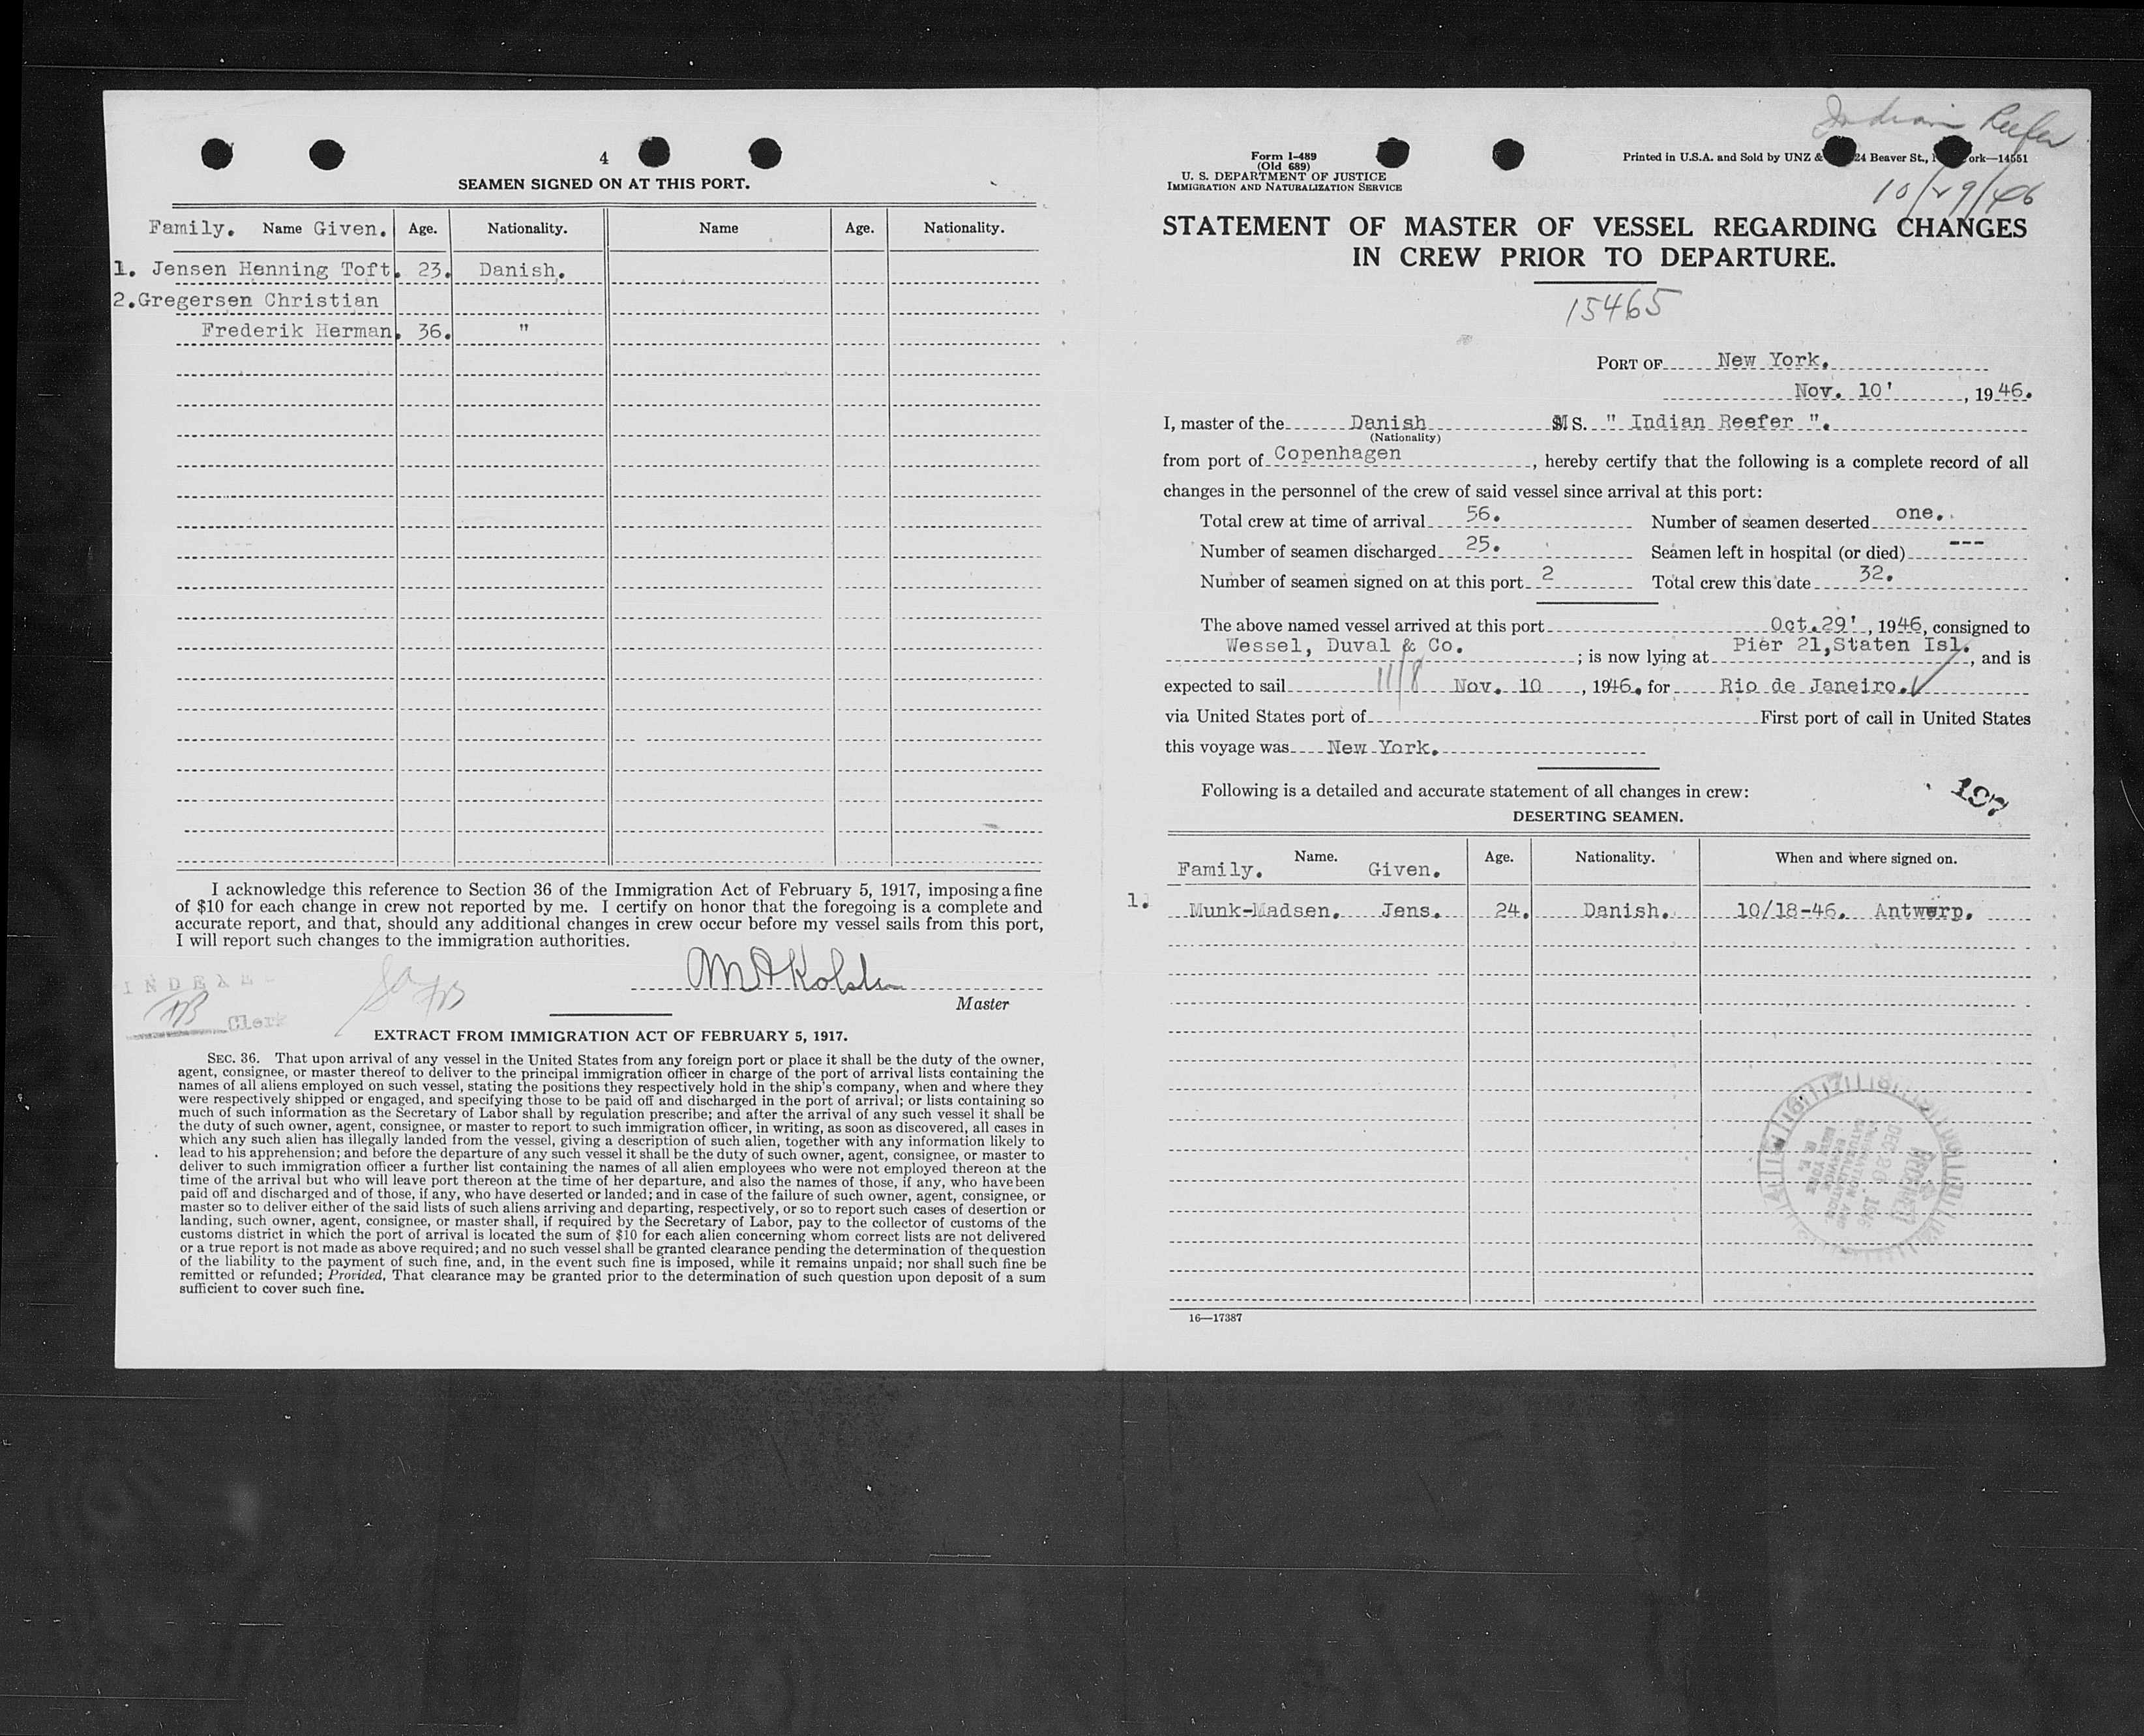 4
SEAMEN SIGNED ON AT THIS PORT.
Family. Name Given. Age. Nationality. Name Age. Nationality.
1. Jensen Henning Toft. 23. Danish.
2. Gregersen Christian
Frederik Herman. 36. "
I acknowledge this reference to Section 36 of the Immigration Act of February 5, 1917, imposing a fine
of $10 for each change in crew not reported by me. I certify on honor that the foregoing is a complete and
accurate report, and that, should any additional changes in crew occur before my vessel sails from this port,
I will report such changes to the immigration authorities.
Master
Clerk
EXTRACT FROM IMMIGRATION ACT OF FEBRUARY 5, 1917.
SEC. 36. That upon arrival of any vessel in the United States from any foreign port or place it shall be the duty of the owner,
agent, consignee, or master thereof to deliver to the principal immigration officer in charge of the port of arrival lists containing the
names of all aliens employed on such vessel, stating the positions they respectively hold in the ship's company, when and where they
were respectively shipped or engaged, and specifying those to be paid off and discharged in the port of arrival; or lists containing so
much of such information as the Secretary of Labor shall by regulation prescribe; and after the arrival of any such vessel it shall be
the duty of such owner, agent, consignee, or master to report to such immigration officer, in writing, as soon as discovered, all cases in
which any such alien has illegally landed from the vessel, giving a description of such alien, together with any information likely to
lead to his apprehension; and before the departure of any such vessel it shall be the duty of such owner, agent, consignee, or master to
deliver to such immigration officer a further list containing the names of all alien employees who were not employed thereon at the
time of the arrival but who will leave port thereon at the time of her departure, and also the names of those, if any, who have been
paid off and discharged and of those, if any, who have deserted or landed; and in case of the failure of such owner, agent, consignee, or
master so to deliver either of the said lists of such aliens arriving and departing, respectively, or so to report such cases of desertion or
landing, such owner, agent, consignee, or master shall, if required by the Secretary of Labor, pay to the collector of customs of the
customs district in which the port of arrival is located the sum of $10 for each alien concerning whom correct lists are not delivered
or a true report is not made as above required; and no such vessel shall be granted clearance pending the determination of the question
of the liability to the payment of such fine, and, in the event such fine is imposed, while it remains unpaid; nor shall such fine be
remitted or refunded; Provided, That clearance may be granted prior to the determination of such question upon deposit of a sum
sufficient to cover such fine.
Indian Reefer
Form I-489
(Old 689)
U. S. DEPARTMENT OF JUSTICE
IMMIGRATION AND NATURALIZATION SERVICE
Printed in U.S.A. and Sold by UNZ & 24 Beaver St., ork—14551
10/29/46
STATEMENT OF MASTER OF VESSEL REGARDING CHANGES
IN CREW PRIOR TO DEPARTURE.
15465
PORT OF New York.
Nov. 10' , 1946.
I, master of the Danish MS. " Indian Reefer ".
(Nationality)
from port of Copenhagen , hereby certify that the following is a complete record of all
changes in the personnel of the crew of said vessel since arrival at this port:
Total crew at time of arrival 56. Number of seamen deserted one.
Number of seamen discharged 25. Seamen left in hospital (or died) ---
Number of seamen signed on at this port 2 Total crew this date 32.
The above named vessel arrived at this port Oct.29' , 1946, consigned to
Wessel, Duval & Co. ; is now lying at Pier 21, Staten Isl. , and is
expected to sail 11/8 Nov. 10 , 1946. for Rio de Janeiro.
via United States port of First port of call in United States
this voyage was New York.
Following is a detailed and accurate statement of all changes in crew:
197
DESERTING SEAMEN.
Family. Name. Given. Age. Nationality. When and where signed on.
1. Munk-Madsen. Jens. 24. Danish. 10/18-46. Antwerp.
16—17387